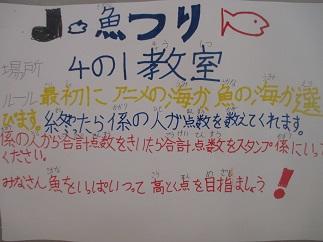 魚つり
場所 4の1教室
ルール 最初にアニメの海か魚の海か選
びます。終わったら係の人が点数を教えてくれます。
係の人から合計点数をきいたら合計点数をスタンプ係にいって
ください。
みなさん魚をいっぱいつって高とく点を目指しましょう!